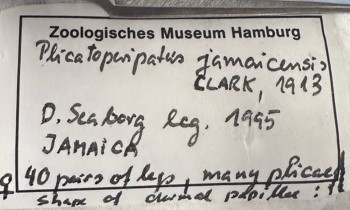 Zoologisches Museum Hamburg
Plicatoperipatus jamaicensis
CLARK, 1913
D. Seaborg leg. 1995
JAMAICA
♀ 40 pairs of legs, many plicae,
shape of dermal papillae: !!